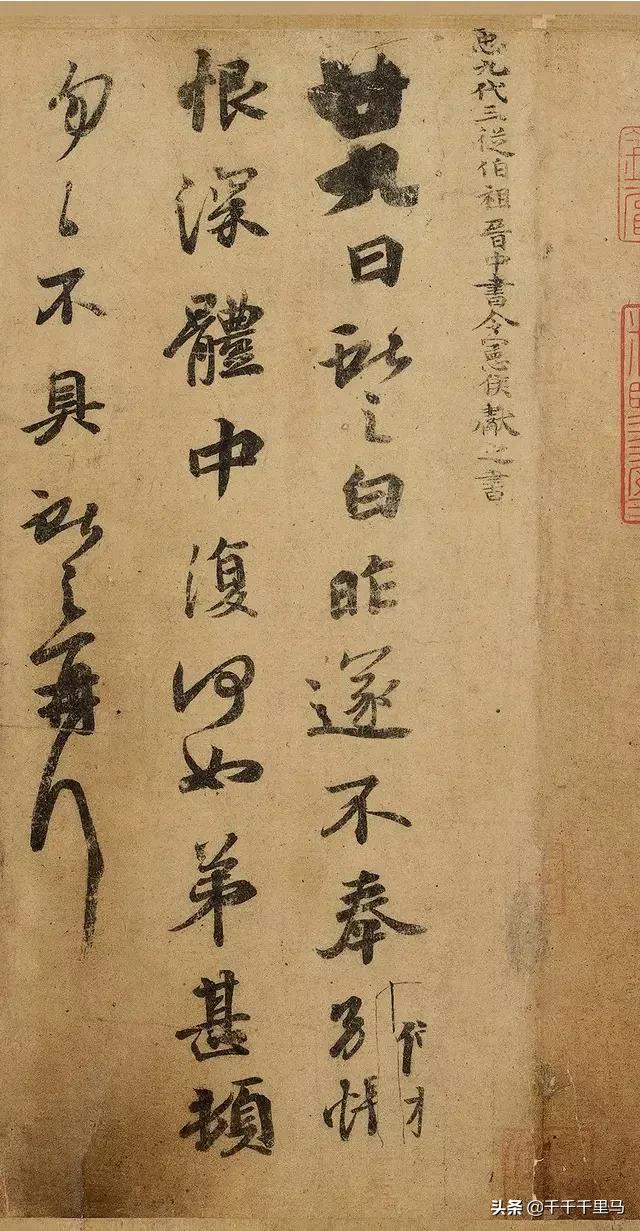 𢘑九代三從伯祖晉中書令憲侯獻之書
廿九日獻之白昨遂不奉別悵
恨深體中復何如弟甚頓
勿〻不具獻之再拜
头条 @千千千里马